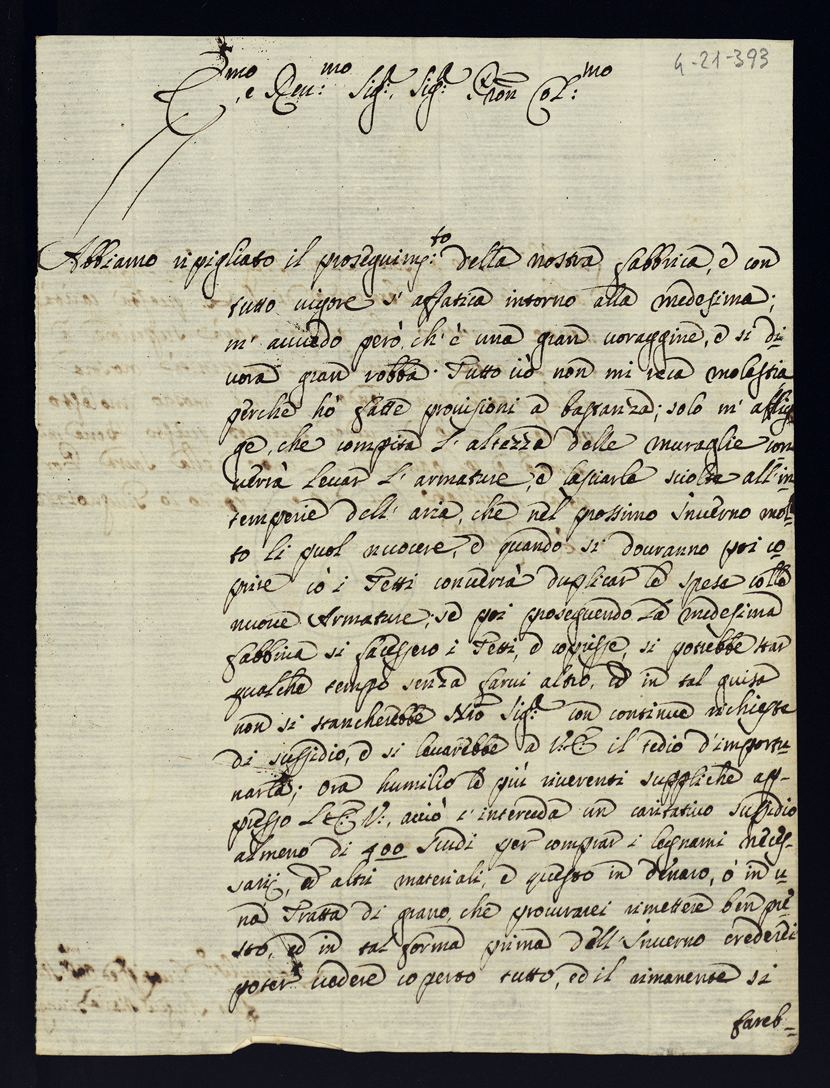 4-21-393
Em.mo e Reu:mo Sig.r, Sig.r Pron Col:mo
Abbiamo ripigliato il proseguim:to della nostra fabbrica, e con
tutto uigore s' affatica intorno alla medesima;
m' auuedo però, ch' è una gran uoraggine, e si di-
uora gran robba. Tutto ciò non mi reca molestia
perche hò fatte prouisioni a bastanza; solo m' afflig-
ge, che compita l' altezza delle muraglie con-
uerrà leuar l' armature, e lasciarle sciolte all' in
temperie dell' aria, che nel prossimo Inuerno mol-
to li puol nuocere, e quando si douranno poi co-
prire cò i Tetti conuerrà duplicar le spese colle
nuoue Armature; se poi proseguendo la medesima
fabbrica si facessero i Tetti, e coprisse, si potrebbe star
qualche tempo senza farui altro, ed in tal guisa
non si stancherebbe N'ro Sig.re con continue richieste
di sussidio, e si leuarebbe a V.E. il tedio d'importu-
narla; Ora humilio le più riuerenti suppliche ap-
presso l'E. V., acciò c' interceda un caritatiuo sussidio
almeno di 400 scudi per comprar i legnami neces-
sarij, ed altri materiali, e questo in denaro, ò in u-
na Tratta di grano, che procurarei rimettere ben pre-
sto, ed in tal forma prima dell' Inuerno crederei
poter uedere coperto tutto, ed il rimanente si
fareb-